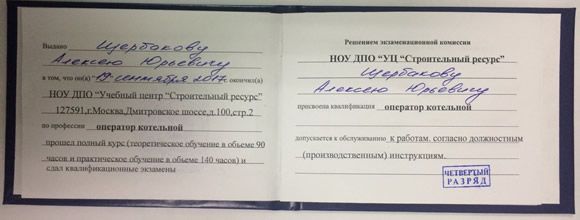 Выдано Щербакову
Алексею Юрьевичу
в том, что он(а) 19 сентября 2017 окончил(а)
НОУ ДПО “Учебный центр “Строительный ресурс”
127591,г.Москва,Дмитровское шоссе,д.100,стр.2
по профессии оператор котельной
прошел полный курс (теоретическое обучение в объеме 90
часов и практическое обучение в объеме 140 часов) и
сдал квалификационные экзамены
Решением экзаменационной комиссии
НОУ ДПО “УЦ “Строительный ресурс”
Щербакову
Алексею Юрьевичу
присвоена квалификация оператор котельной
допускается к обслуживанию к работам. согласно должностным
(производственным) инструкциям.
ЧЕТВЕРТЫЙ
РАЗРЯД